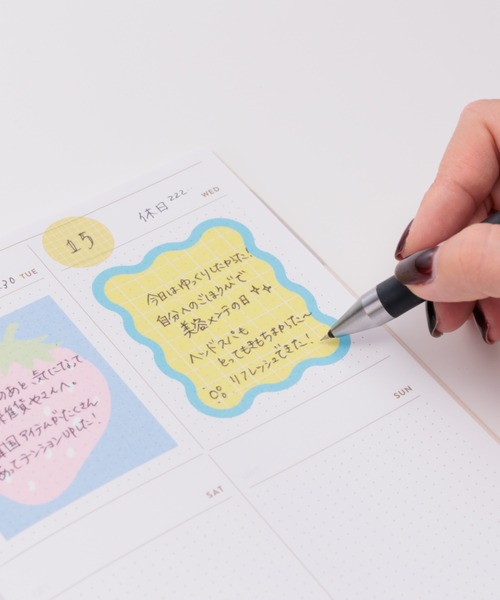 WED
休日
15
今日はゆっくりしたかった!
自分へのごほうびで
美容メンテの日
ヘッドスパも
とってもきもちよかった〜
リフレッシュできた!
TUE
のあと、気になってた
雑貨やさんへ。
韓国アイテムがたくさん
あってテンションUPした!
SUN
SAT